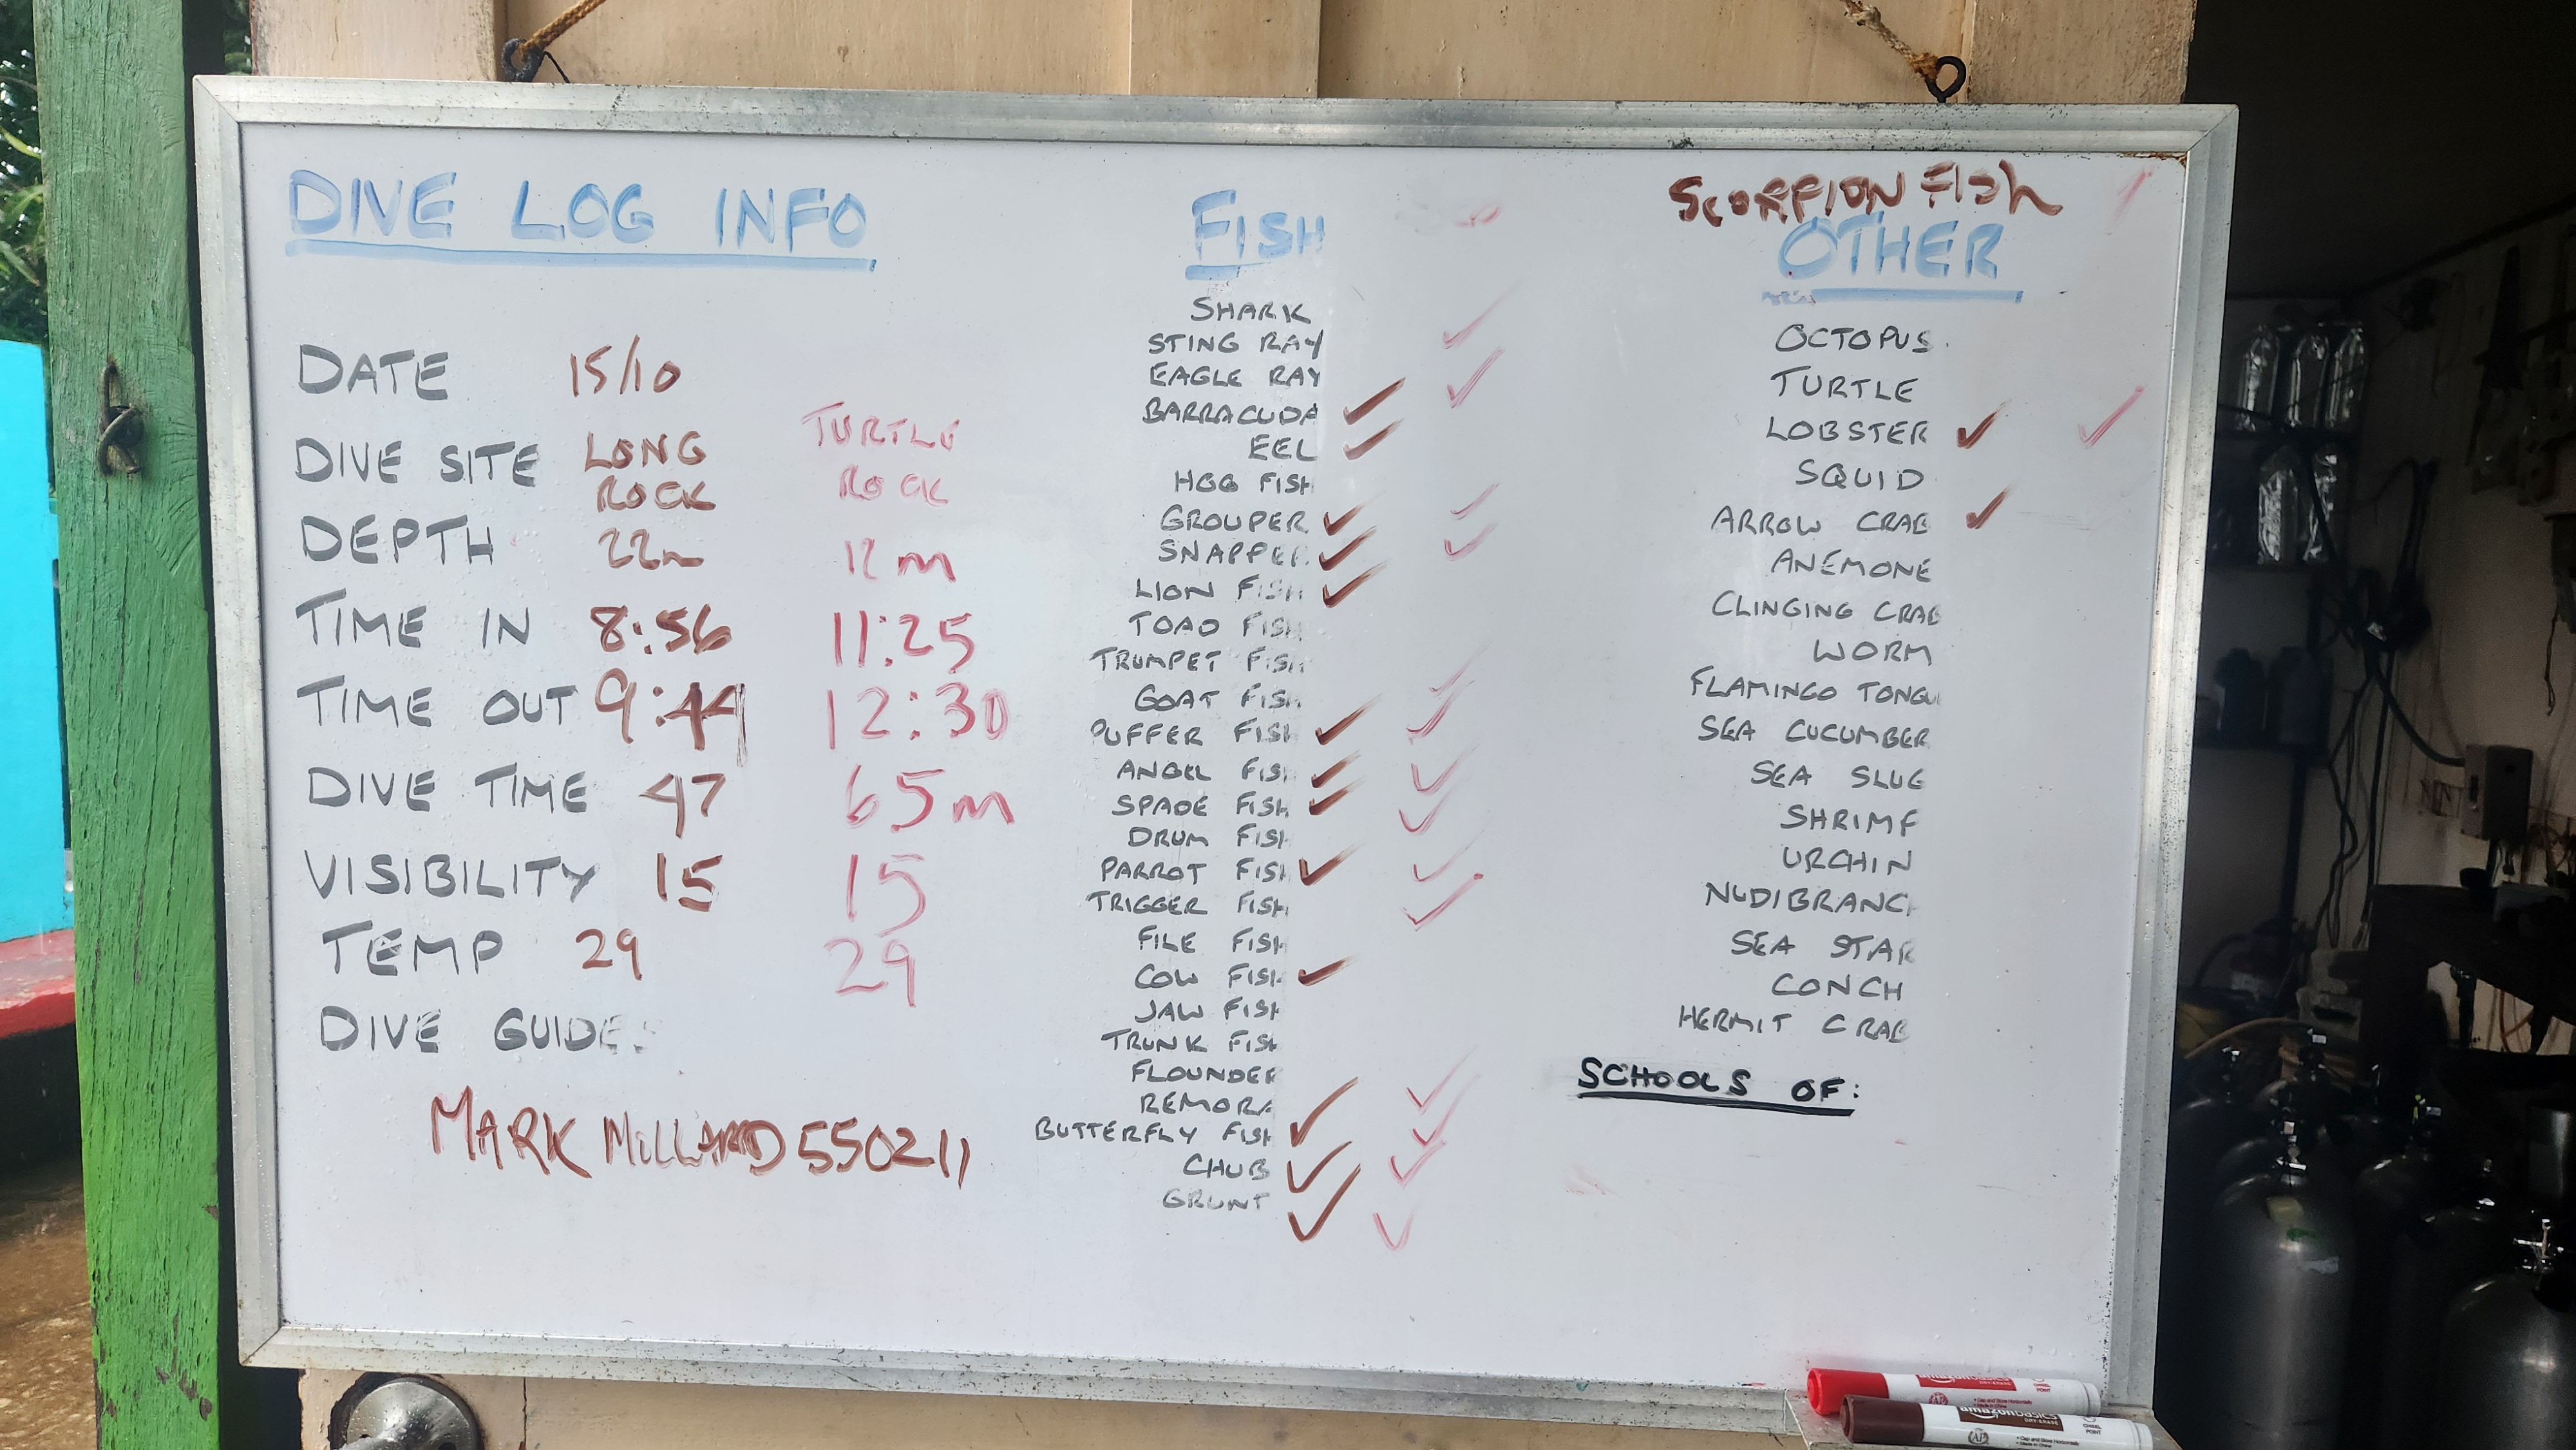 DIVE LOG INFO
DATE 15/10
DIVE SITE LONG ROCK TURTLE ROCK
DEPTH 22m 12m
TIME IN 8:56 11:25
TIME OUT 9:44 12:30
DIVE TIME 47 65m
VISIBILITY 15 15
TEMP 29 29
DIVE GUIDES
MARK MILLARD 550211
FISH
SHARK
STING RAY ✓
EAGLE RAY ✓
BARRACUDA ✓
EEL ✓
HOG FISH
GROUPER ✓ ✓
SNAPPER ✓ ✓
LION FISH ✓
TOAD FISH
TRUMPET FISH
GOAT FISH ✓
PUFFER FISH ✓ ✓
ANGEL FISH ✓ ✓
SPADE FISH ✓ ✓
DRUM FISH
PARROT FISH ✓ ✓
TRIGGER FISH ✓
FILE FISH
COW FISH ✓
JAW FISH
TRUNK FISH
FLOUNDER
REMORA ✓
BUTTERFLY FISH ✓ ✓
CHUB ✓ ✓
GRUNT ✓ ✓
SCORPION FISH
OTHER
OCTOPUS
TURTLE
LOBSTER ✓ ✓
SQUID
ARROW CRAB ✓
ANEMONE
CLINGING CRAB
WORM
FLAMINGO TONGU
SEA CUCUMBER
SEA SLUG
SHRIMP
URCHIN
NUDIBRANCH
SEA STAR
CONCH
HERMIT CRAB
SCHOOLS OF:
amazonbasics